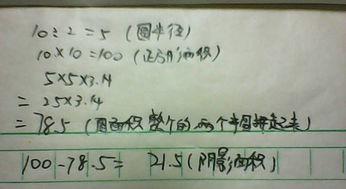 10÷2=5 (圆半径)
10×10=100 (正方形面积)
5×5×3.14
= 25×3.14
= 78.5 (圆面积 整个的 两个半圆拼起来)
100-78.5= 21.5 (阴影面积)